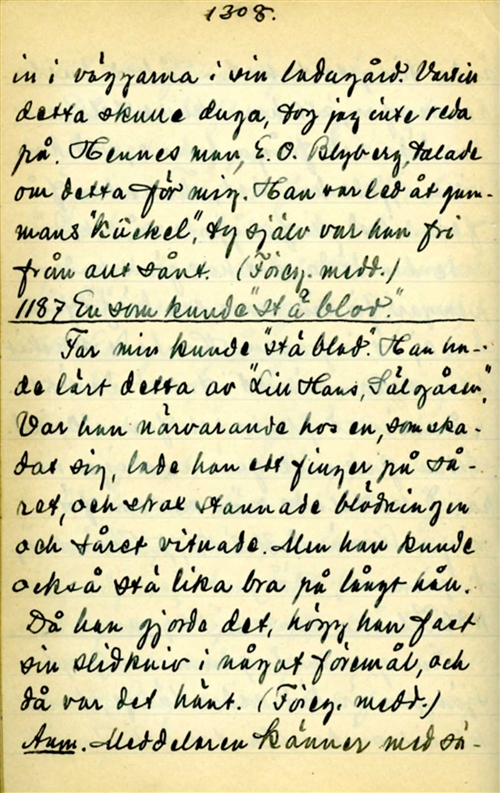 1308.
in i väggarna i sin ladugård. Vartill
detta skulle duga, tog jag inte reda
på. Hennes man, E. O. Blyberg, talade
om detta för mig. Han var led åt gum-
mans "kückel", ty själv var han fri
från allt sånt. (Föreg. medd.)
1187 En som kunde "stå blod."
Far min kunde "stå blod". Han ha-
de lärt detta av "Lill Hans, Sälgåsen".
Var han närvarande hos en, som ska-
dat sig, lade han ett finger på så-
ret, och strax stannade blödningen
och såret vitnade. Men han kunde
också stå lika bra på långt håll.
Då han gjorde det, högg han fast
sin slidkniv i något föremål, och
då var det hänt. (Föreg. medd.)
Anm. Meddelaren känner med sä-